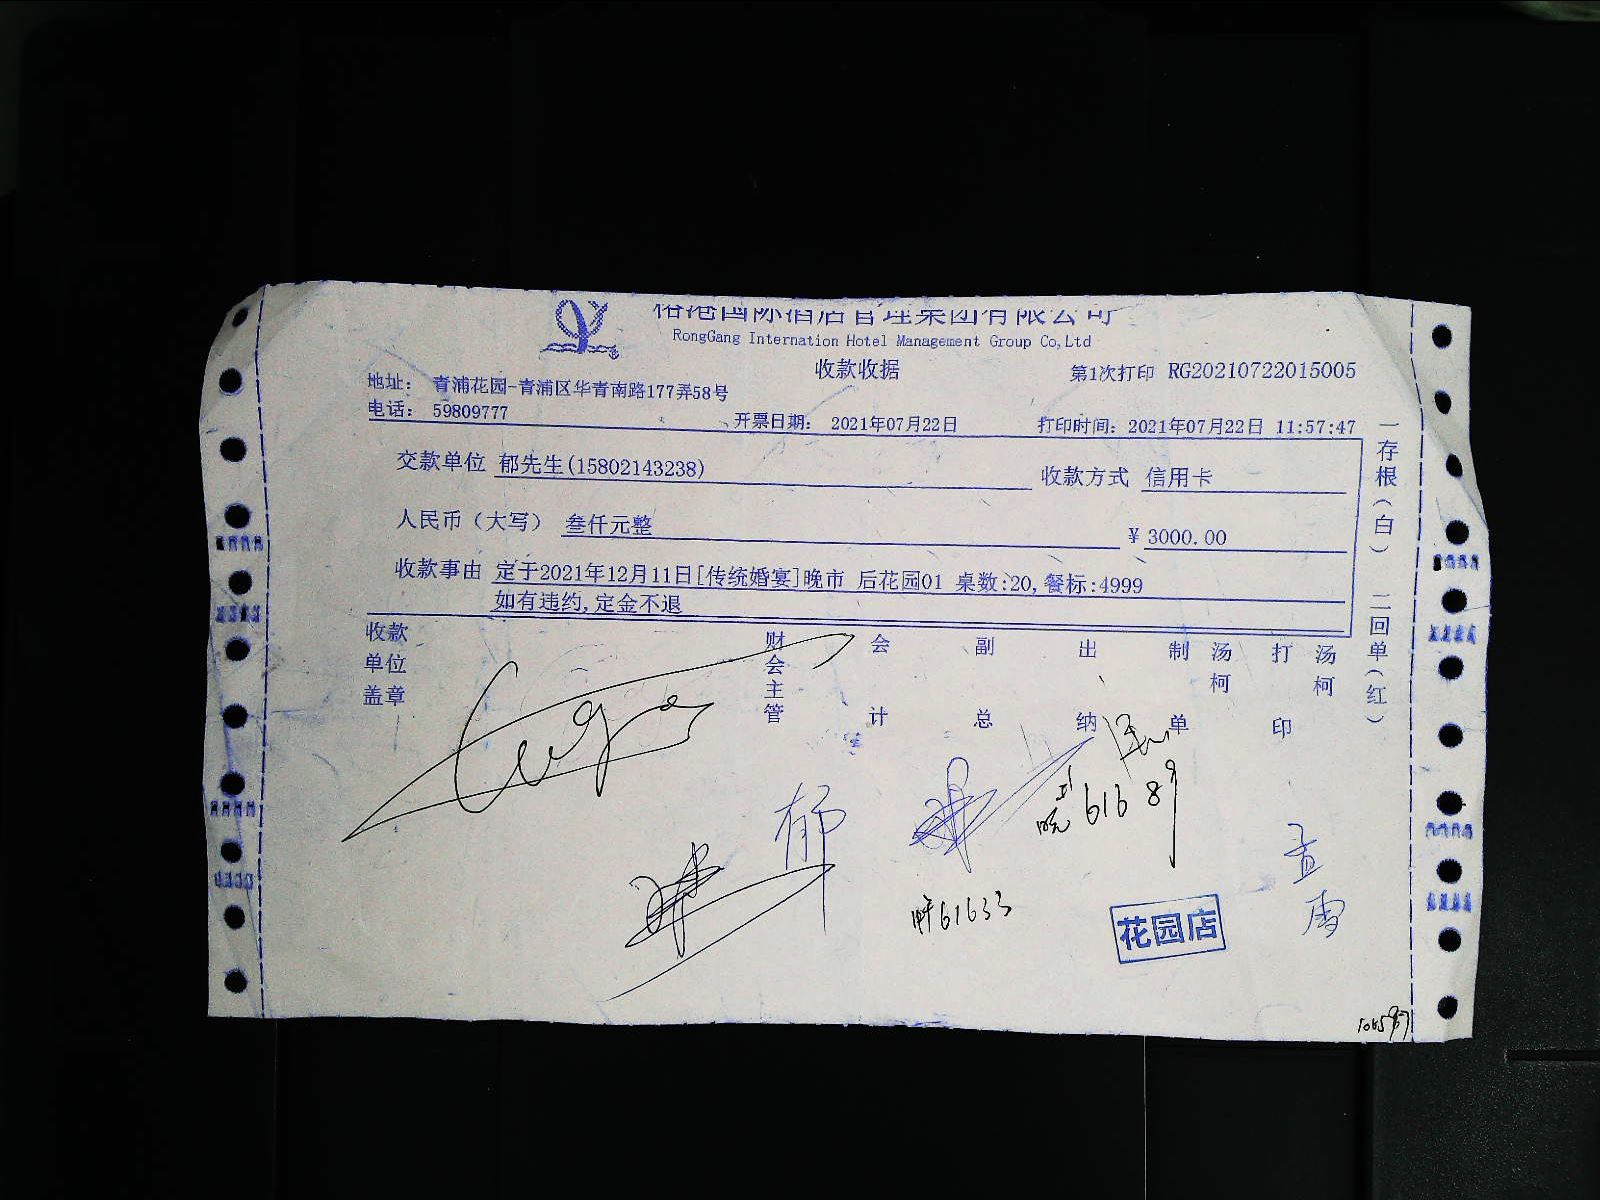 榕港国际酒店管理集团有限公司
RongGang Internation Hotel Management Group Co,Ltd
收款收据
第1次打印 RG20210722015005
地址: 青浦花园-青浦区华青南路177弄58号
电话: 59809777
开票日期: 2021年07月22日
打印时间: 2021年07月22日 11:57:47
交款单位 郁先生(15802143238)
收款方式 信用卡
人民币（大写） 叁仟元整
¥ 3000.00
收款事由 定于2021年12月11日[传统婚宴]晚市 后花园01 桌数:20,餐标:4999
如有违约,定金不退
收款单位盖章
财会主管
会计
副总
出纳
制单
汤柯
打印
汤柯
一存根(白) 二回单(红)
郁
61689
61633
花园店
孟雷